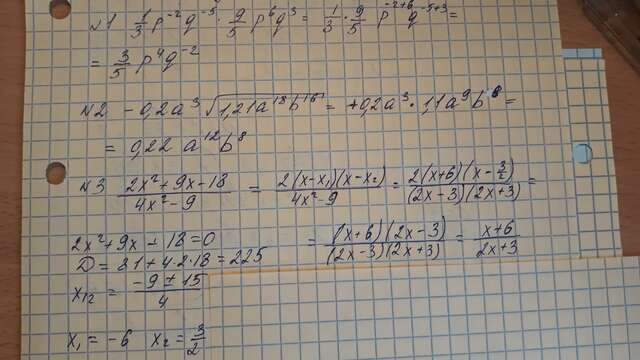 №1 1/3 p⁻²q⁻⁵ · 9/5 p⁶q³ = 1/3 · 9/5 p⁻²⁺⁶ q⁻⁵⁺³ =
= 3/5 p⁴q⁻²
№2 -0,2a³ √(1,21a¹⁸b¹⁶) = +0,2a³ · 1,1a⁹b⁸ =
= 0,22 a¹²b⁸
№3 (2x²+9x-18)/(4x²-9) = 2(x-x₁)(x-x₂)/(4x²-9) = 2(x+6)(x-3/2)/((2x-3)(2x+3)) =
= (x+6)(2x-3)/((2x-3)(2x+3)) = (x+6)/(2x+3)
2x²+9x-18=0
D=81+4·2·18=225
x₁,₂ = (-9±15)/4
x₁=-6 x₂=3/2